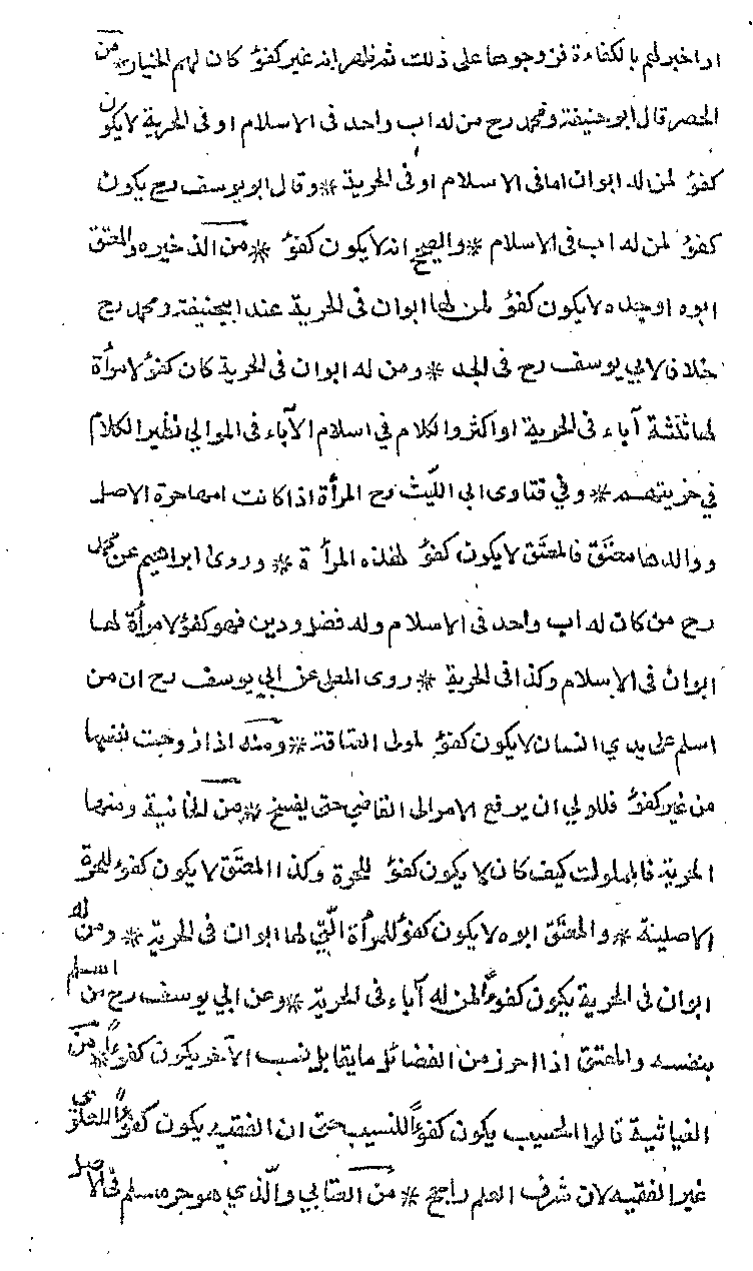 اذا اخبر لهم بالكفاءة فزوجوها على ذلك ثم ظهر انه غير كفؤ كان لهم الخيار * من
الحصر قال ابو حنيفة ومحمد رح من له اب واحد فى الاسلام او فى الحرية لا يكون
كفؤ لمن له ابوان اما فى الاسلام او فى الحرية * وقال ابو يوسف رح يكون
كفؤ لمن له اب فى الاسلام * والصحيح انه لا يكون كفؤ * من الذخيره والمعتق
ابوه او جده لا يكون كفؤ لمن لها ابوان فى الحرية عند ابيحنيفة ومحمد رح
خلافا لابي يوسف رح فى الجد * ومن له ابوان فى الحرية كان كفؤ لامرأة
لها ثلثة آباء فى الحرية او اكثر والكلام في اسلام الآباء فى الموالي نظير الكلام
في حريتهم * وفي فتاوى ابى الليث رح المرأة اذا كانت امها حرة الاصل
ووالدها معتَق فالمعتَق لا يكون كفؤ لهذه المرأة * وروى ابراهيم عن محمد
رح من كان له اب واحد فى الاسلام وله فضل ودين فهو كفؤ لامرأة لها
ابوان فى الاسلام وكذا فى الحرية * روى المعلى عن ابي يوسف رح ان من
اسلم على يدي انسان لا يكون كفؤ لمولى العتاقة * ومنه اذا زوجت نفسها
من غير كفؤ فللولي ان يرفع الامر الى القاضي حتى يفسخ * من الخانية ومنها
الحرية فالمملوك كيف كان لا يكون كفؤ للحرة وكذا المعتَق لا يكون كفؤ للحرة
الاصلية * والمعتَق ابوه لا يكون كفؤ للمرأة الّتي لها ابوان فى الحرية * ومن له
ابوان فى الحرية يكون كفوءاً لمن له آباء فى الحرية * وعن ابي يوسف رح من اسلم
بنفسه والمعتق اذا احرز من الفضائل ما يقابل نسب الآخر يكون كفوءاً * من
الغياثية قالوا الحسيب يكون كفوءاً للنسيب حتى ان الفقيه يكون كفوءاً للعلوي
غير الفقيه لان شرف العلم راجح * من العتابي والّذي هو حر مسلم فى الاصل